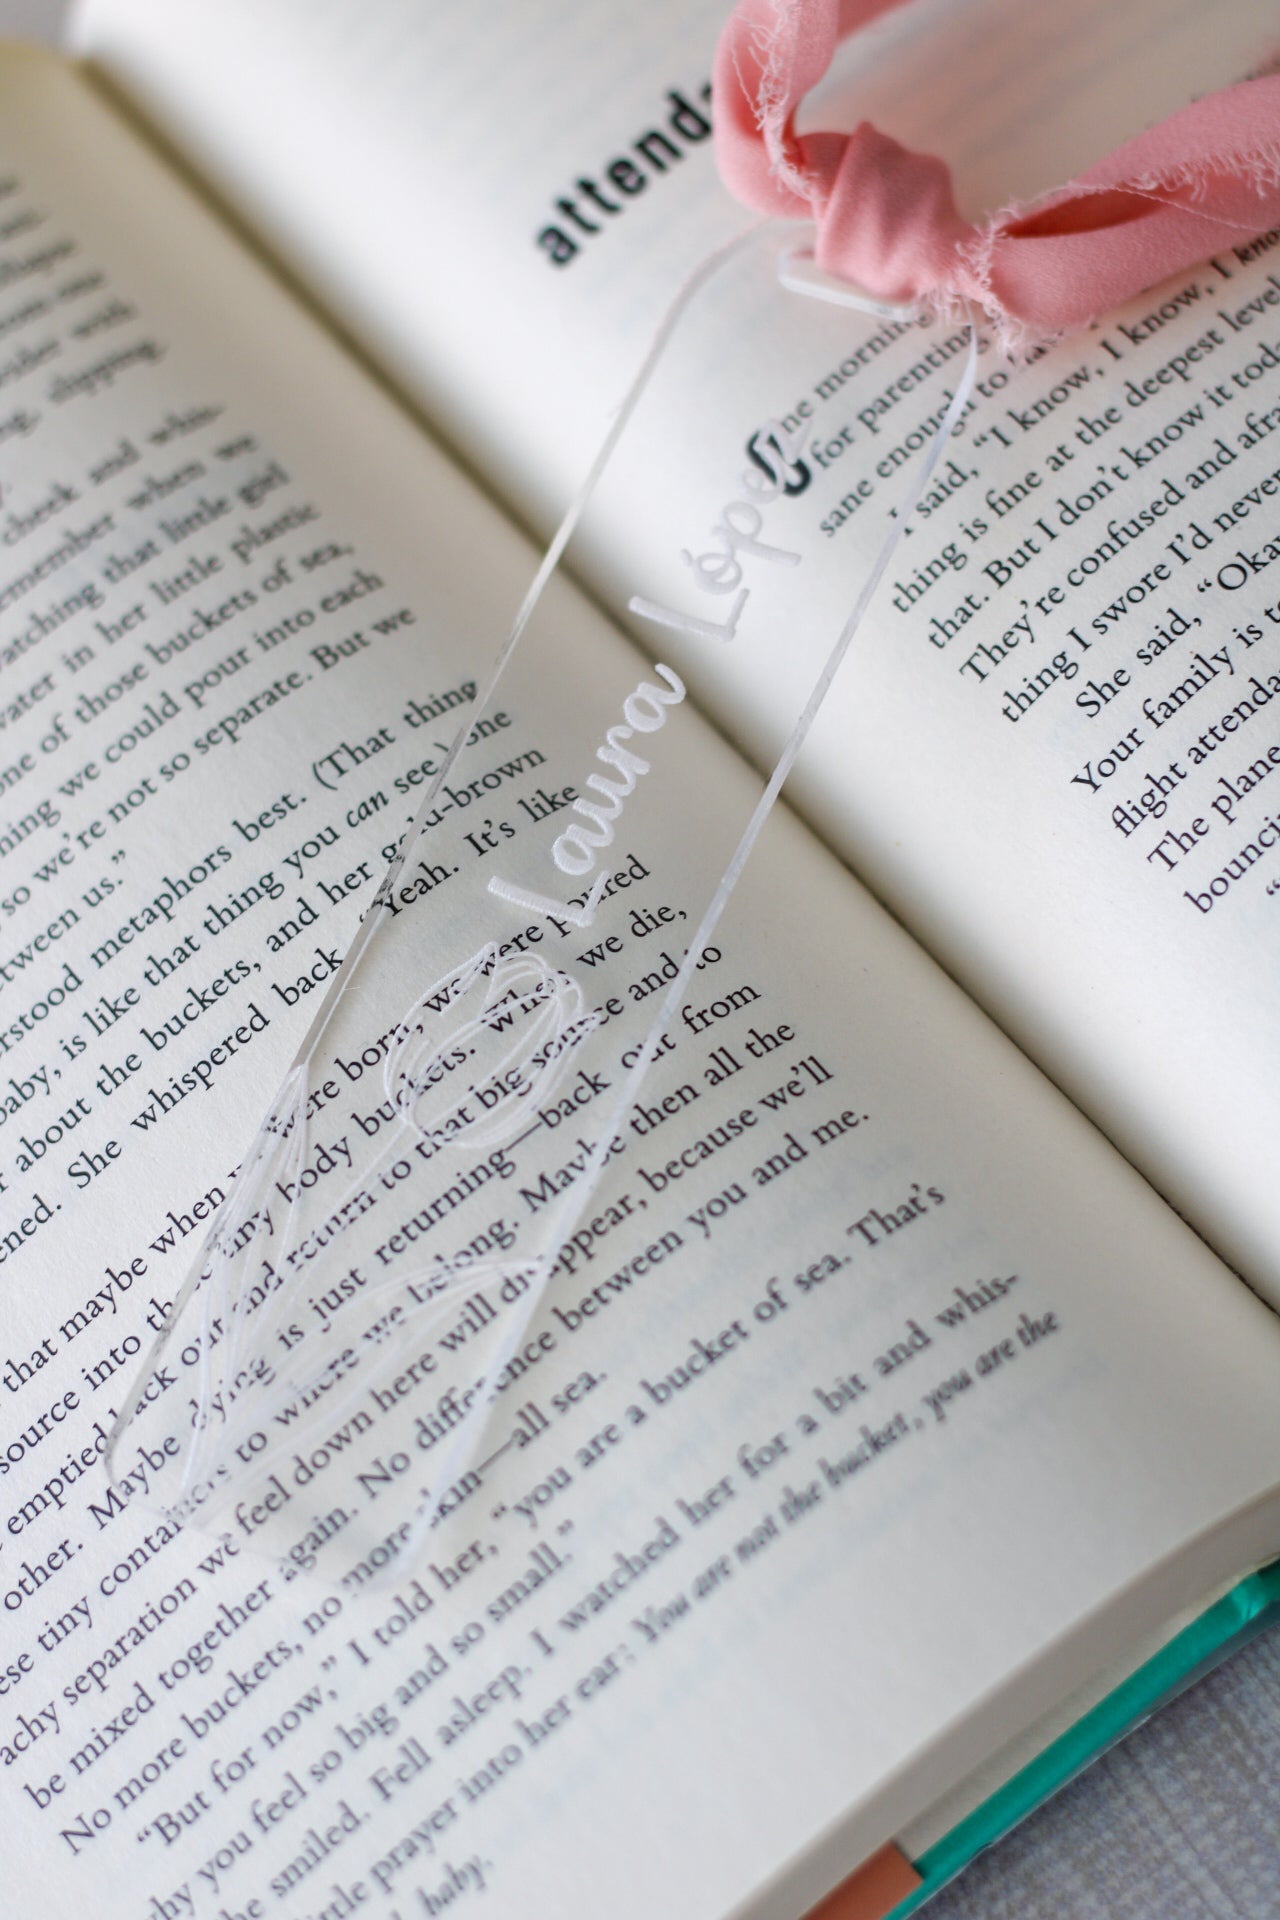 cheek and whis-
remember when we
watching that little girl
water in her little plastic
one of those buckets of sea,
we could pour into each
so we're not so separate. But we
between us."
metaphors best. (That thing
baby, is like that thing you can see.) She
about the buckets, and her gold-brown
She whispered back "Yeah. It's like
that maybe when we were born, we were poured
source into these tiny body buckets. When we die,
emptied back out and return to that big source and to
other. Maybe dying is just returning—back out from
these tiny containers to where we belong. Maybe then all the
achy separation we feel down here will disappear, because we'll
be mixed together again. No difference between you and me.
No more buckets, no more skin—all sea.
"But for now," I told her, "you are a bucket of sea. That's
why you feel so big and so small."
She smiled. Fell asleep. I watched her for a bit and whis-
little prayer into her ear: You are not the bucket, you are the
baby.
Laura López
attend
One morning
for parenting
sane enough to
I said, "I know, I know, I know, I know
thing is fine at the deepest level
that. But I don't know it
They're confused and
thing I swore I'd never
She said, "Okay
Your family is
flight
The plane